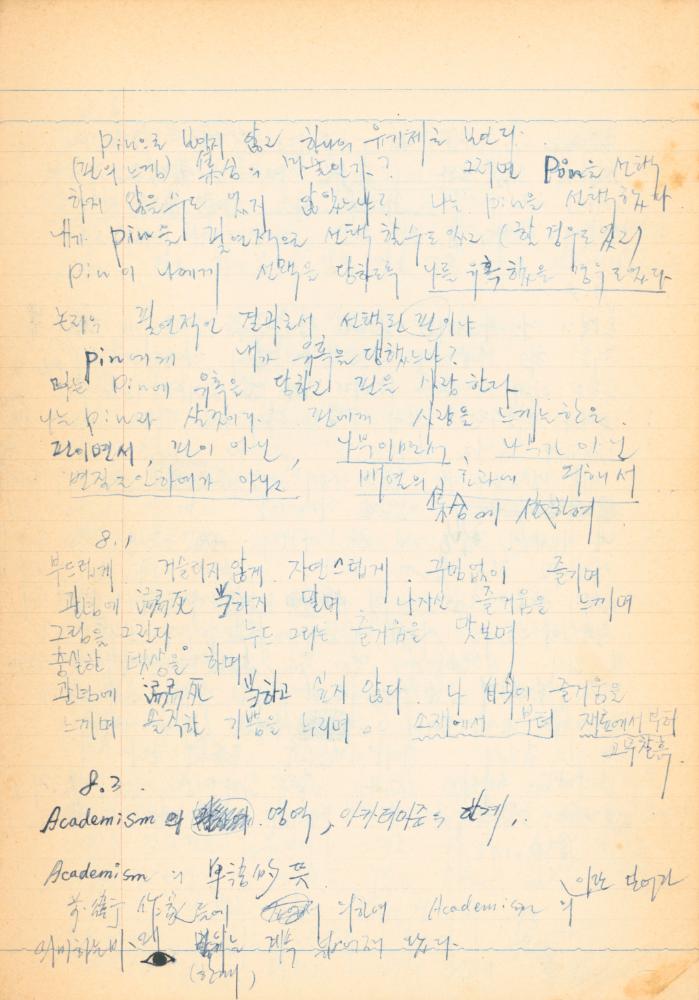 pin으로 보았지 않고 하나의 유기체로 보면다.
(핀의 느낌) 集合의 가? 그러면 Pin을 선택
하지 않을 수도 있지 않았느냐? 나는 pin을 선택했다
내가 pin을 필연적으로 선택할 수도 있고 (할 경우도 있고)
pin이 나에게 선택을 당하도록 나를 유혹했을 경우도 있다
필연적인 결과로서 선택된 핀이냐
pin에게 내가 유혹을 당했느냐?
나는 pin에 유혹을 당하고 핀을 사랑한다
나는 pin과 살것이다. 핀에게 사랑을 느끼는 한은.
핀이면서, 핀이 아닌, 나무이면서, 나무가 아닌
배열의 효과에 의해서
集合에 依하여
8.1
부드럽게 거슬리지 않게 자연스럽게. 꾸밈없이 즐기며
관념에 溺死 当하지 말며. 나자신 즐거움을 느끼며
그림을 그린다 누드 그리는 즐거움을 맛보며
충실한 뎃상을 하며
관념에 溺死 当하고 싶지 않다. 나 自身이 즐거움을
느끼며 솔직한 기쁨을 누리며. 소재에서 부터 재료에서 부터
고무찰흙.
8.3.
Academism의 영역, 아카데미즘의 한계,.
Academism의 単語的 뜻
作家들에 의하여 Academism의 이란 단어가
의미하는바. 왜 계속
(한계)